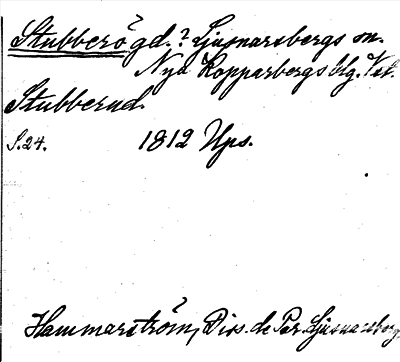 Stubberö gd.? Ljusnarsbergs sn.
Nya Kopparbergs blg. Vstm.
Stubberud.
S. 24. 1812 Ups.
Hammarström, Diss. de Par. Ljusnarsberg